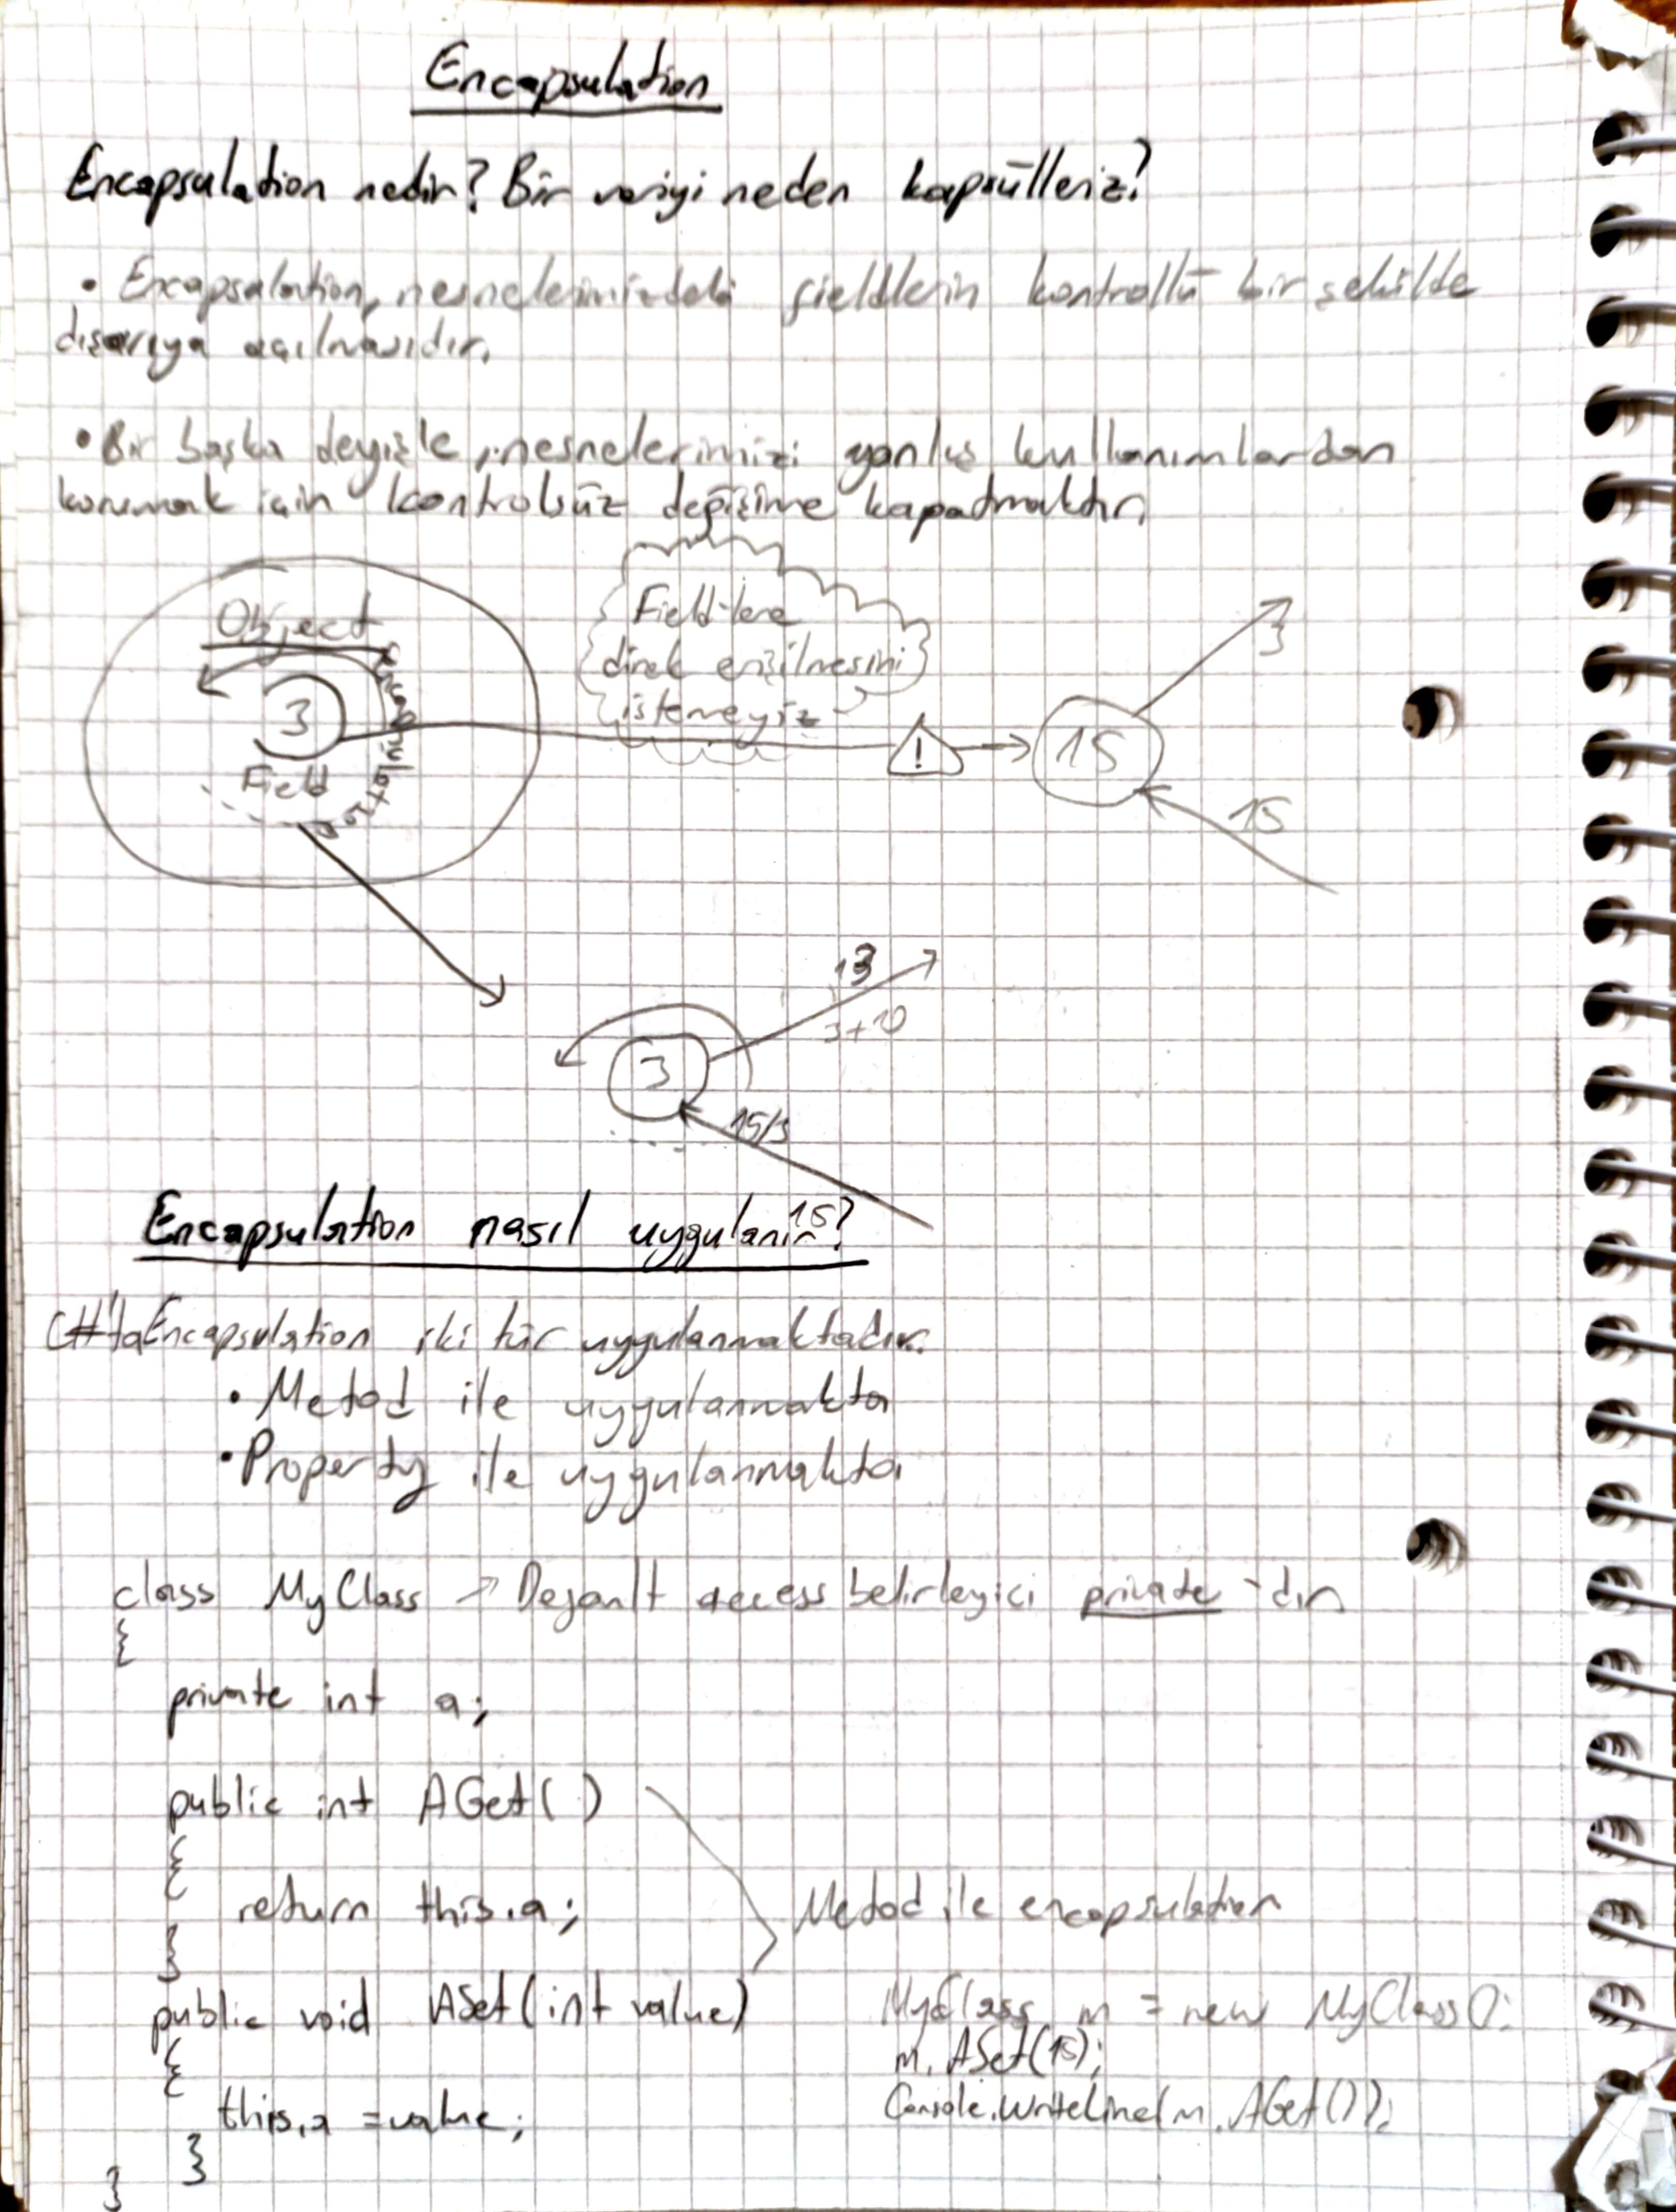 Encapsulation
Encapsulation nedir? Bir veriyi neden kapsülleriz?
• Encapsulation, nesnelerimizdeki fieldlerin kontrollü bir şekilde
dışarıya açılmasıdır.
• Bir başka deyişle, nesnelerimizi yanlış kullanımlardan
korumak için kontrolsüz değişime kapatmaktır.
Object
3
Field
Encapsulation
Field-lere
direk erişilmesini
istemeyiz
!
15
3
15
13
3+10
3
15/3
15
Encapsulation nasıl uygulanır?
C#'ta Encapsulation iki tür uygulanmaktadır.
• Metod ile uygulanmakta
• Property ile uygulanmakta
class MyClass → Default access belirleyici private-dır
{
private int a;
public int AGet()
{
return this.a;
}
Metod ile encapsulation
public void ASet(int value)
{
this.a = value;
}
}
MyClass m = new MyClass();
m.ASet(15);
Console.WriteLine(m.AGet());